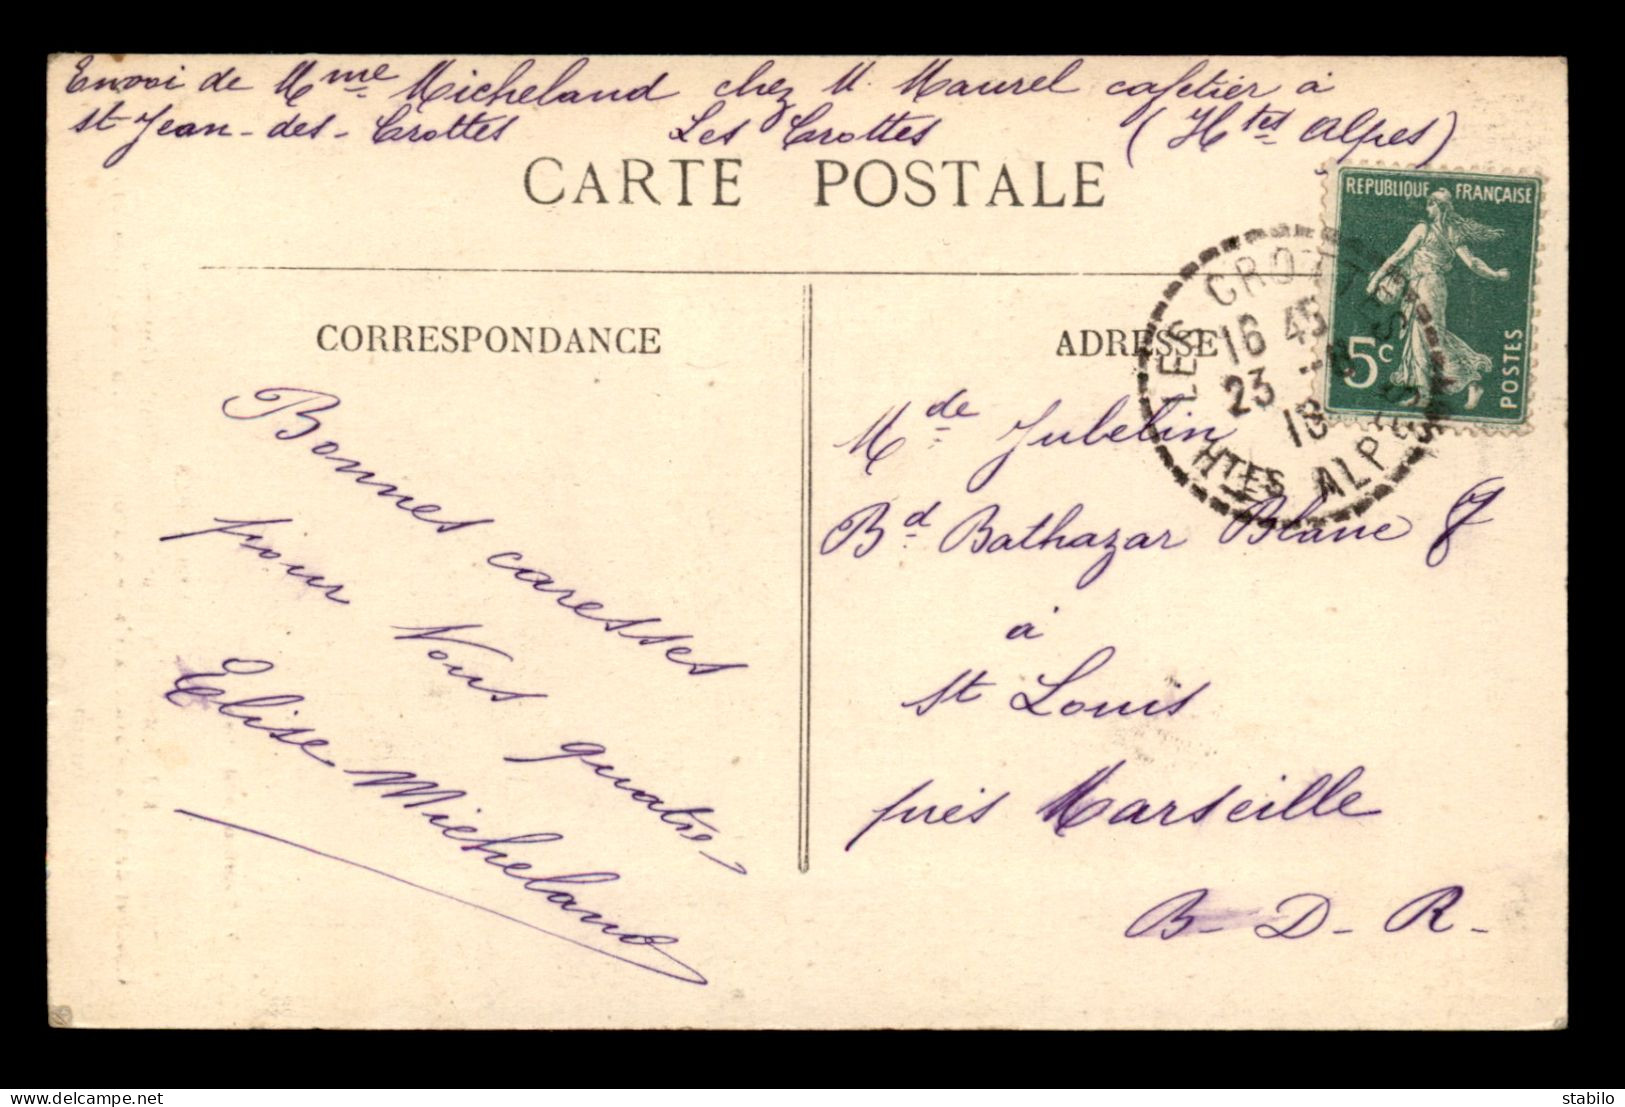 Envoi de Mme Micheland chez M. Maurel cafetier à
St Jean-des-Crottes Les Crottes (Htes Alpes)
CARTE POSTALE
REPUBLIQUE FRANÇAISE
5c
POSTES
LES CROTTES
16 45
23
HTES ALPES
CORRESPONDANCE
Bonnes caresses
pour vous quatre
Elise Micheland
ADRESSE
Mde Jubelin
Bd Balthazar Blanc
à
St Louis
près Marseille
B-D-R-
delcampe.net
stabilo